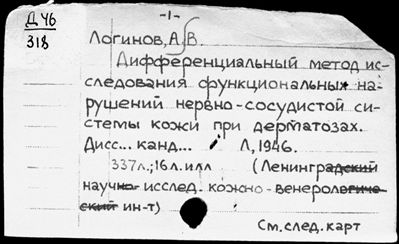 Д 46
318
-1-
Логинов, А. В.
Дифференциальный метод ис-
следования функциональных на-
рушений нервно-сосудистой си-
стемы кожи при дерматозах.
Дисс... канд... Л, 1946.
337л.; 16л. илл (Ленинградский
научно. исслед. кожно-венерологиче-
ский ин-т)
См. след. карт